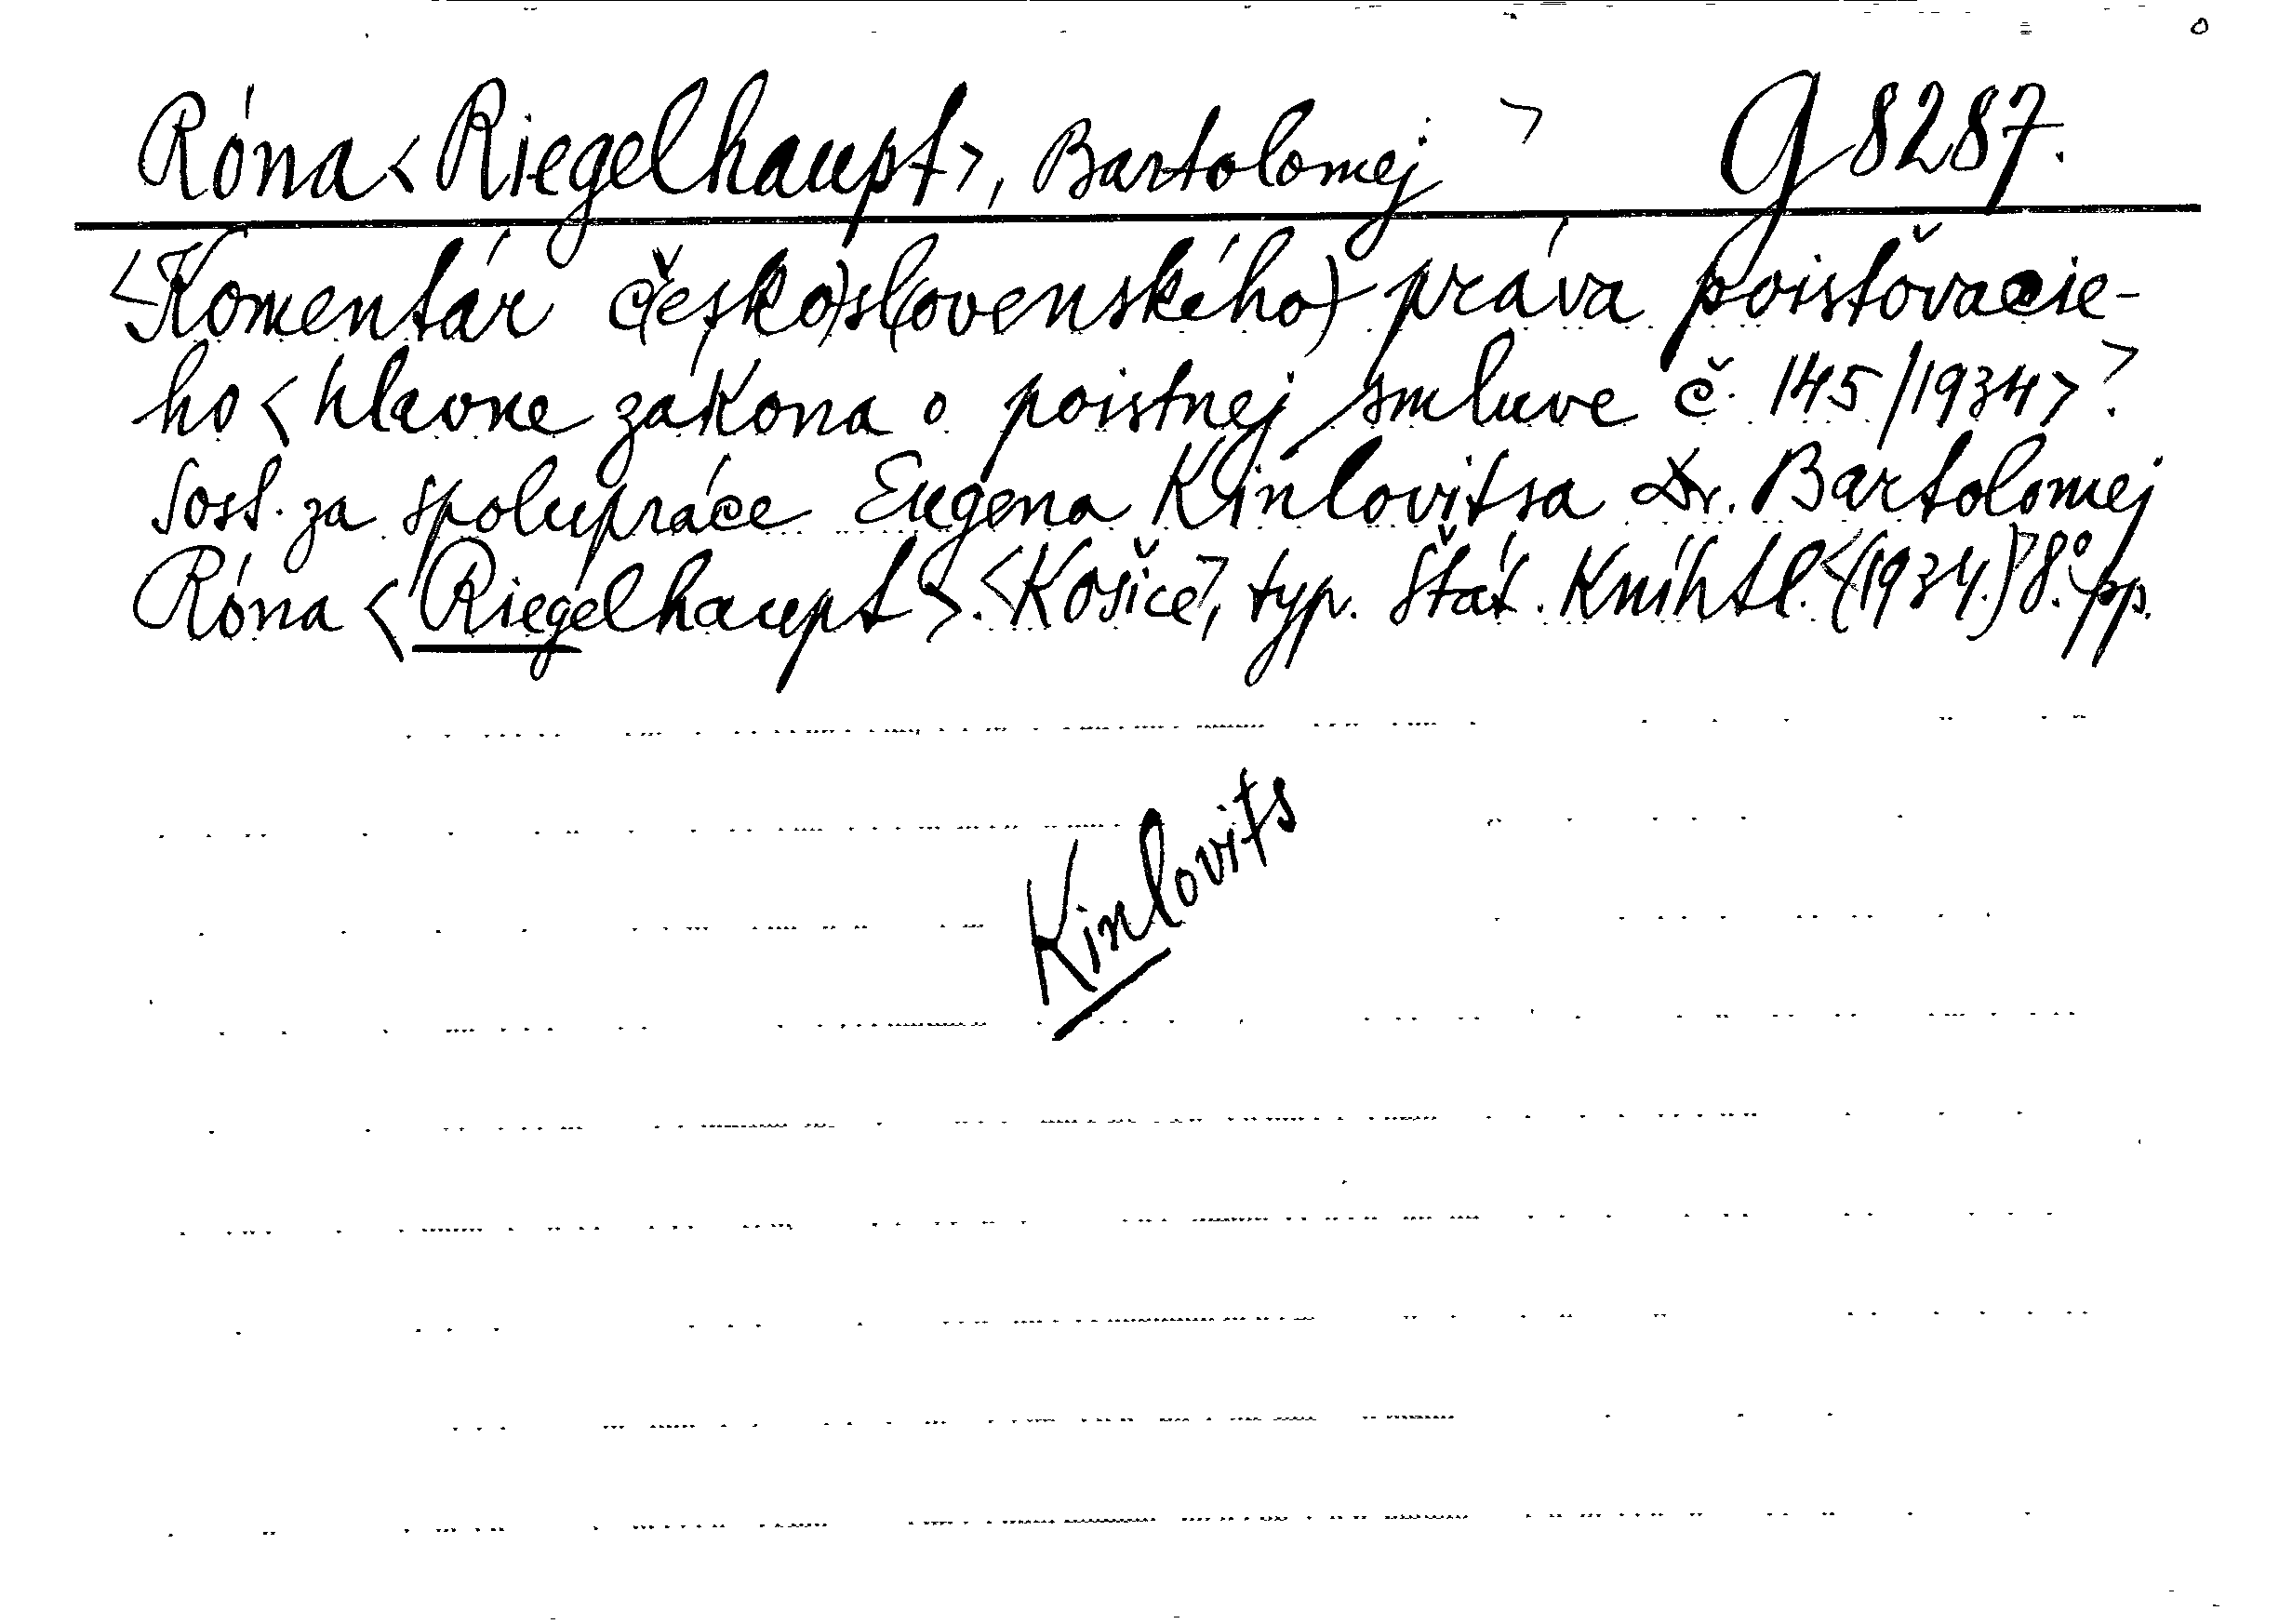 Róna < Riegelhaupt >, Bartolomej > G 8287.
< Komentár č(esko)sl(ovenského) práva poisťovacie-
ho < hlavne zákona o poistnej smluve č. 145/1934 > >.
Sost. za spolupráce Eugena Kinlovitsa Dr. Bartolomej
Róna < Riegelhaupt >. < Košice >, typ. Štát. Kníhtl. < (1934.) > 8.° pp.
Kinlovits